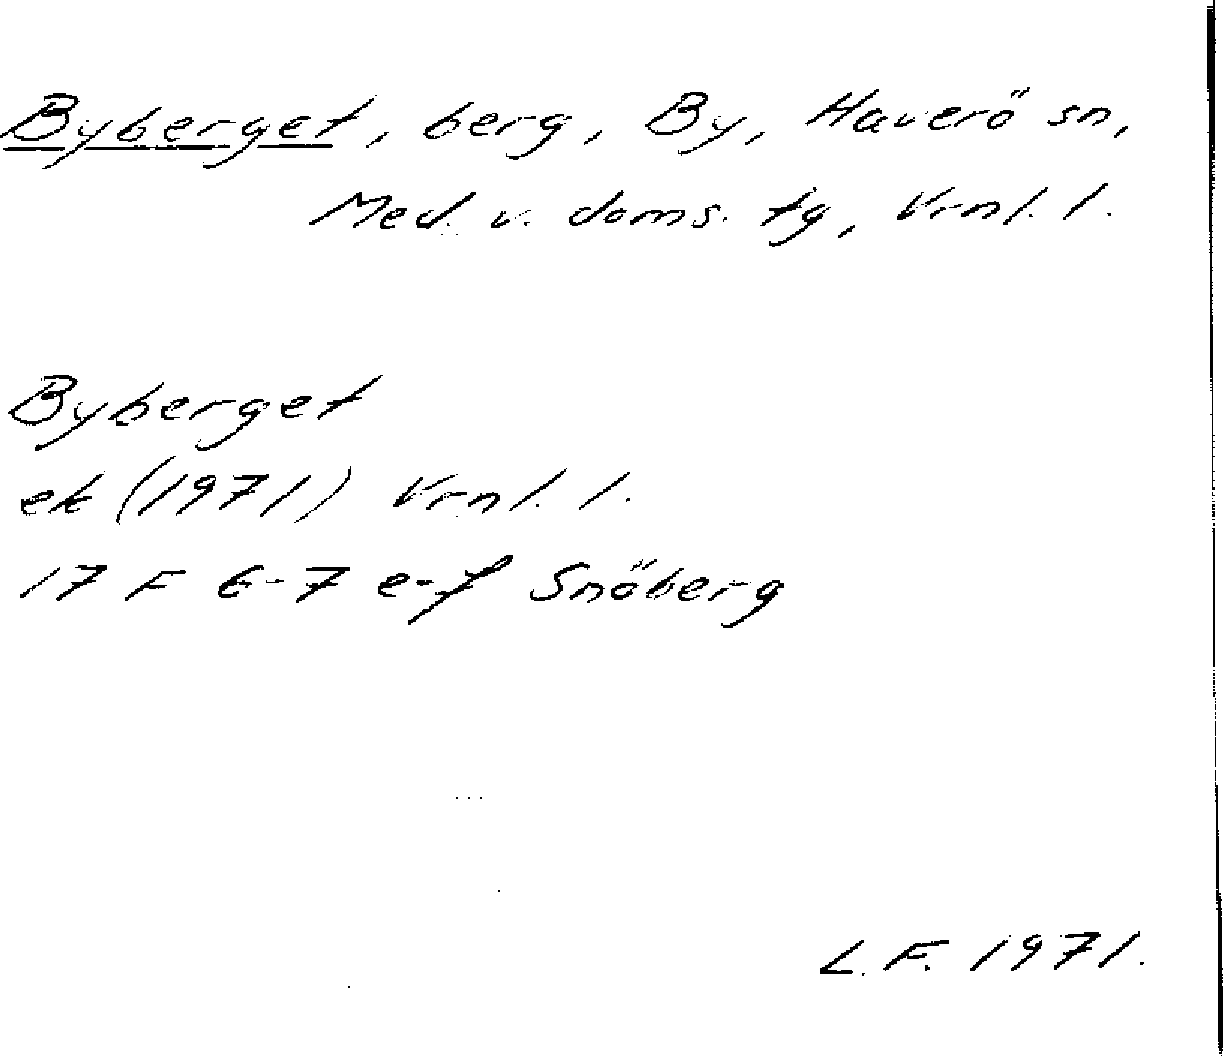 Byberget, berg, By, Haverö sn,
Med. v. doms. tg, Vrnl. l.
Byberget
ek (1971) Vrnl. l.
17 F 6-7 e-f Snöberg
L. F. 1971.